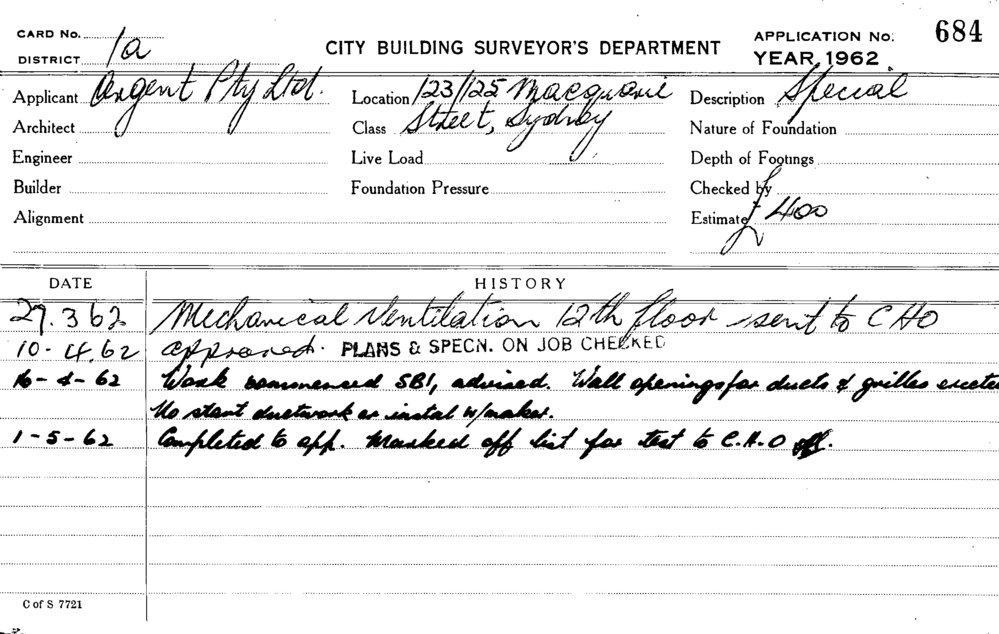 CARD No.
DISTRICT 1a
CITY BUILDING SURVEYOR'S DEPARTMENT
APPLICATION No. 684
YEAR, 1962.
Applicant Argent Pty Ltd. Location 123/125 Macquarie Description Special
Architect Class Street, Sydney Nature of Foundation
Engineer Live Load Depth of Footings
Builder Foundation Pressure Checked by
Alignment Estimate £400
DATE HISTORY
27.3 62 Mechanical Ventilation 12th floor - sent to C HO
10-4.62 approved. PLANS & SPECN. ON JOB CHECKED
16-4-62 Work commenced SBI, advised. Wall openings for ducts & grilles erected
No start ductwork or instal w/maker.
1-5-62 Completed to app. Marked off list for test to C.H.O
C of S 7721